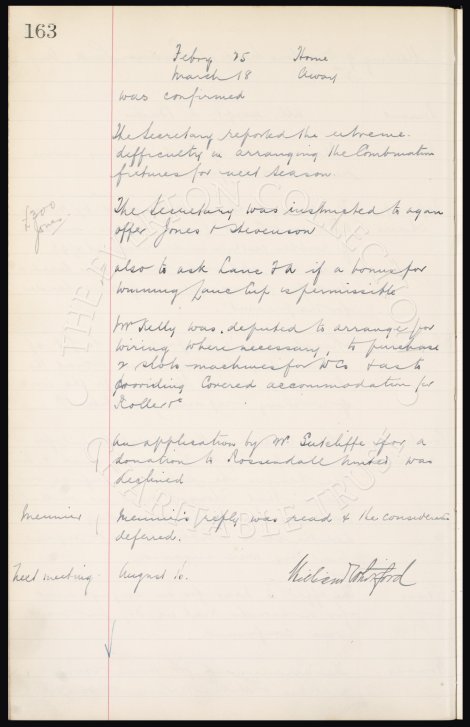 163
Febry 25 Home
March 18 Away
was confirmed
The Secretary reported the extreme
difficulty in arranging the Combination
fixtures for next season
£300
Jones
The Secretary was instructed to again
offer Jones & Stevenson
also to ask Lanc FA if a bonus for
winning Lanc Cup is permissible
Mr Kelly was deputed to arrange for
wiring where necessary, to purchase
2 slot machines for WCs & as to
providing Covered accommodation for
Roller &c
An application by Mr Sutcliffe for a
donation to Rossendale United was
declined
Meunier
Meunier's reply was read & the consideration
deferred.
Next meeting
August 16.
THE EVERTON COLLECTION
CHARITABLE TRUST